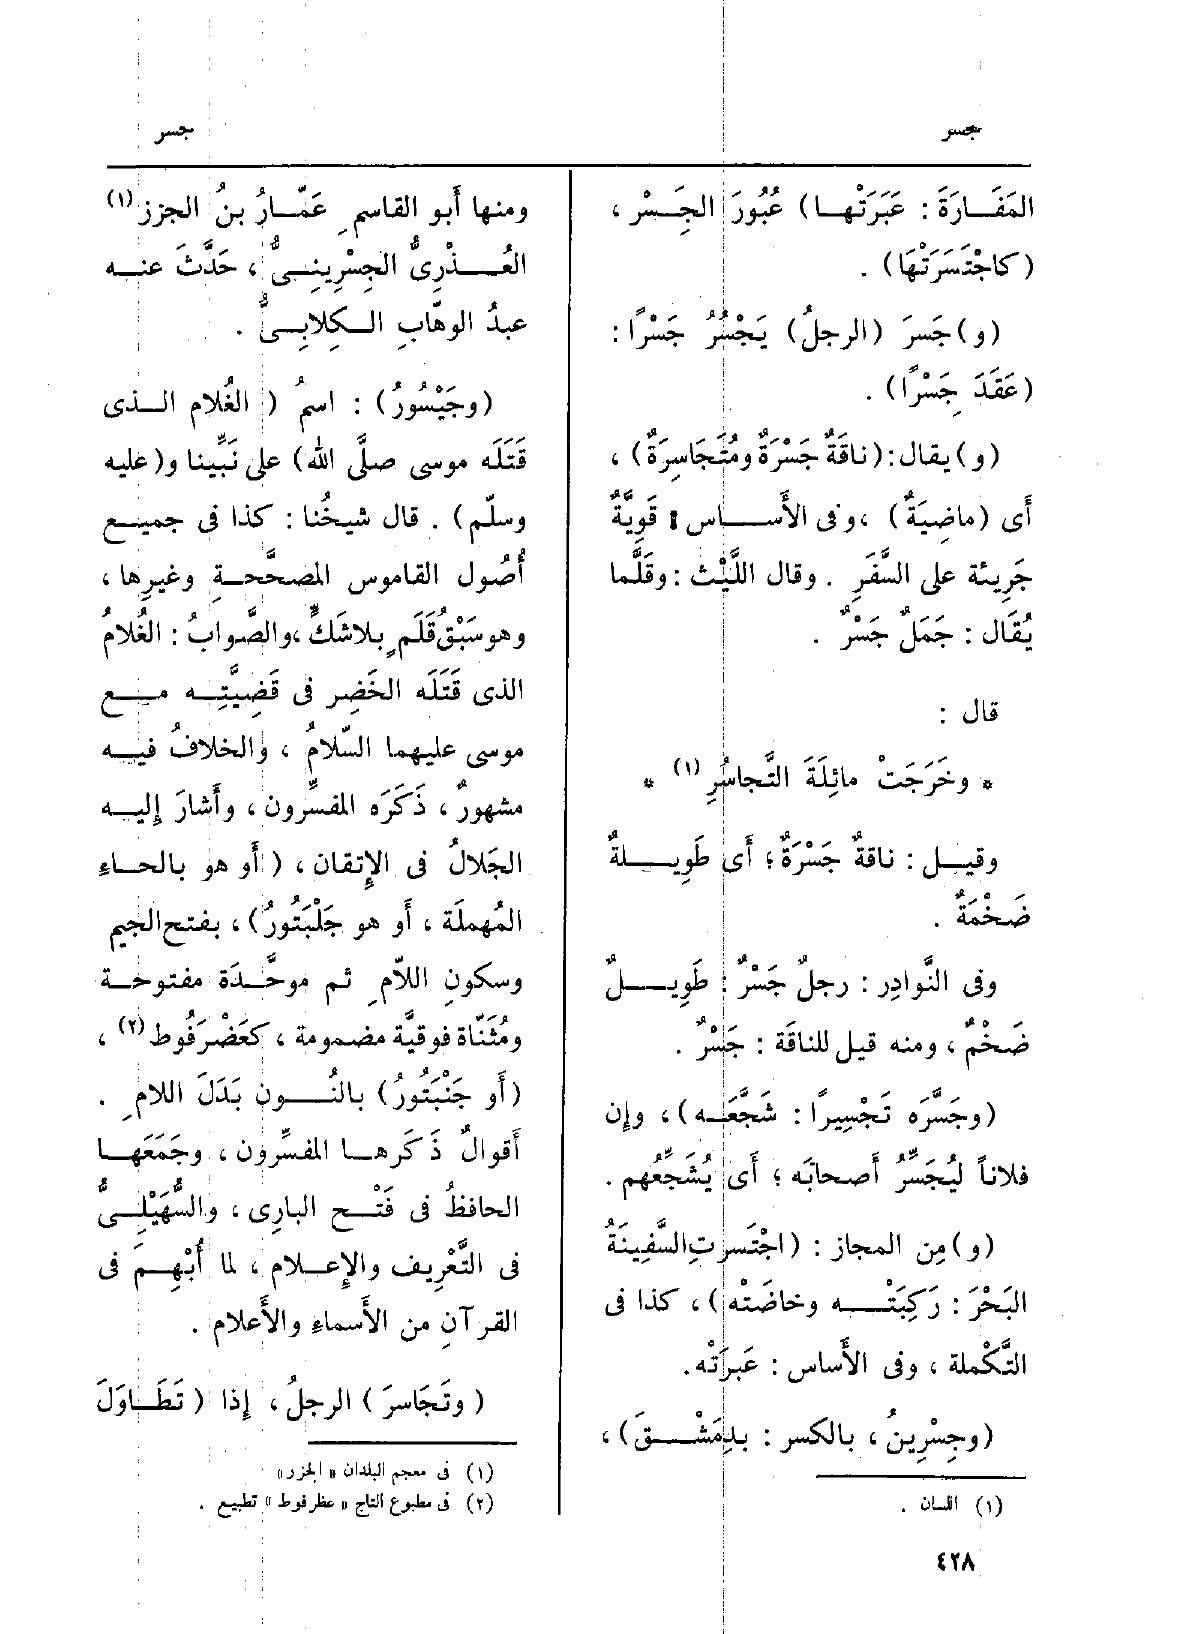 جسر
جسر
المَفَازَةَ : عَبَرَتْها) عُبُورَ الجِسْرِ ،
(كاجْتَسَرَتْهَا) .
(و) جَسَرَ (الرجلُ) يَجْسُرُ جَسْرًا :
(عَقَدَ جِسْرًا) .
(و) يقال : (ناقَةٌ جَسْرَةٌ ومُتَجَاسِرَةٌ) ،
أى (ماضِيَةٌ) ، وفى الأَساس : قَوِيَّةٌ
جَرِيئة على السَّفَرِ . وقال اللَّيْث : وقَلَّما
يُقَال : جَمَلٌ جَسْرٌ .
قال :
* وخَرَجَتْ مائِلَةَ التَّجاسُرِ (١) *
وقيل : ناقةٌ جَسْرَةٌ ؛ أَى طَوِيلةٌ
ضَخْمَةٌ .
وفى النَّوادِر : رجلٌ جَسْرٌ : طَوِيلٌ
ضَخْمٌ ، ومنه قيل للناقَة : جَسْرٌ .
(وجَسَّرَه تَجْسِيرًا : شَجَّعَه) ، وإن
فلاناً لَيُجَسِّرُ أَصحابَه ؛ أَى يُشَجِّعُهم .
(و) مِن المجاز : (اجْتَسَرتِ السَّفِينَةُ
البَحْرَ : رَكِبَتْه وخاضَتْه) ، كذا فى
التَّكْملة ، وفى الأَساس : عَبَرَتْه .
(وجِسْرِينُ ، بالكسر : بدِمَشْقَ) ،
(١) اللسان .
ومنها أَبو القاسمِ عَمّارُ بنُ الجزز (١)
العُذْرِىُّ الجِسْرِينِىُّ ، حَدَّثَ عنه
عبدُ الوهّابِ الكِلابِىُّ .
(وجَيْسُورُ) : اسمُ (الغُلام الذى
قَتَلَه موسى صلَّى الله) على نَبِّينا و(عليه
وسلّم) . قال شيخُنا : كذا فى جميع
أُصُول القاموس المصحَّحةِ وغيرِها ،
وهو سَبْقُ قَلَمٍ بلا شَكٍّ ، والصَّوابُ : الغُلامُ
الذى قَتَلَه الخَضِر فى قَضِيَّتِه مع
موسى عليهما السّلامُ ، والخلافُ فيه
مشهورٌ ، ذَكَرَه المفسِّرون ، وأَشارَ إليه
الجَلالُ فى الإتقان ، (أَو هو بالحاءِ
المُهملَة ، أَو هو جَلْبَتُورُ) ، بفتح الجيم
وسكونِ اللّامِ ثم موحَّدَة مفتوحة
ومُثنّاة فوقيَّة مضمومة ، كعَضْرَفُوط (٢) ،
(أَو جَنْبَتُورُ) بالنُّون بَدَلَ اللامِ .
أَقوالٌ ذَكَرها المفسِّرون ، وجَمَعَها
الحافظُ فى فَتْح البارِى ، والسُّهَيْلِىُّ
فى التَّعْرِيف والإعلام ، لما أُبْهِمَ فى
القرآنِ من الأَسماءِ والأَعلام .
(وتَجَاسرَ) الرجلُ ، إذا (تَطَاوَلَ
(١) فى معجم البلدان « الخزر »
(٢) فى مطبوع التاج « عظرفوط » تطبيع .
٤٢٨